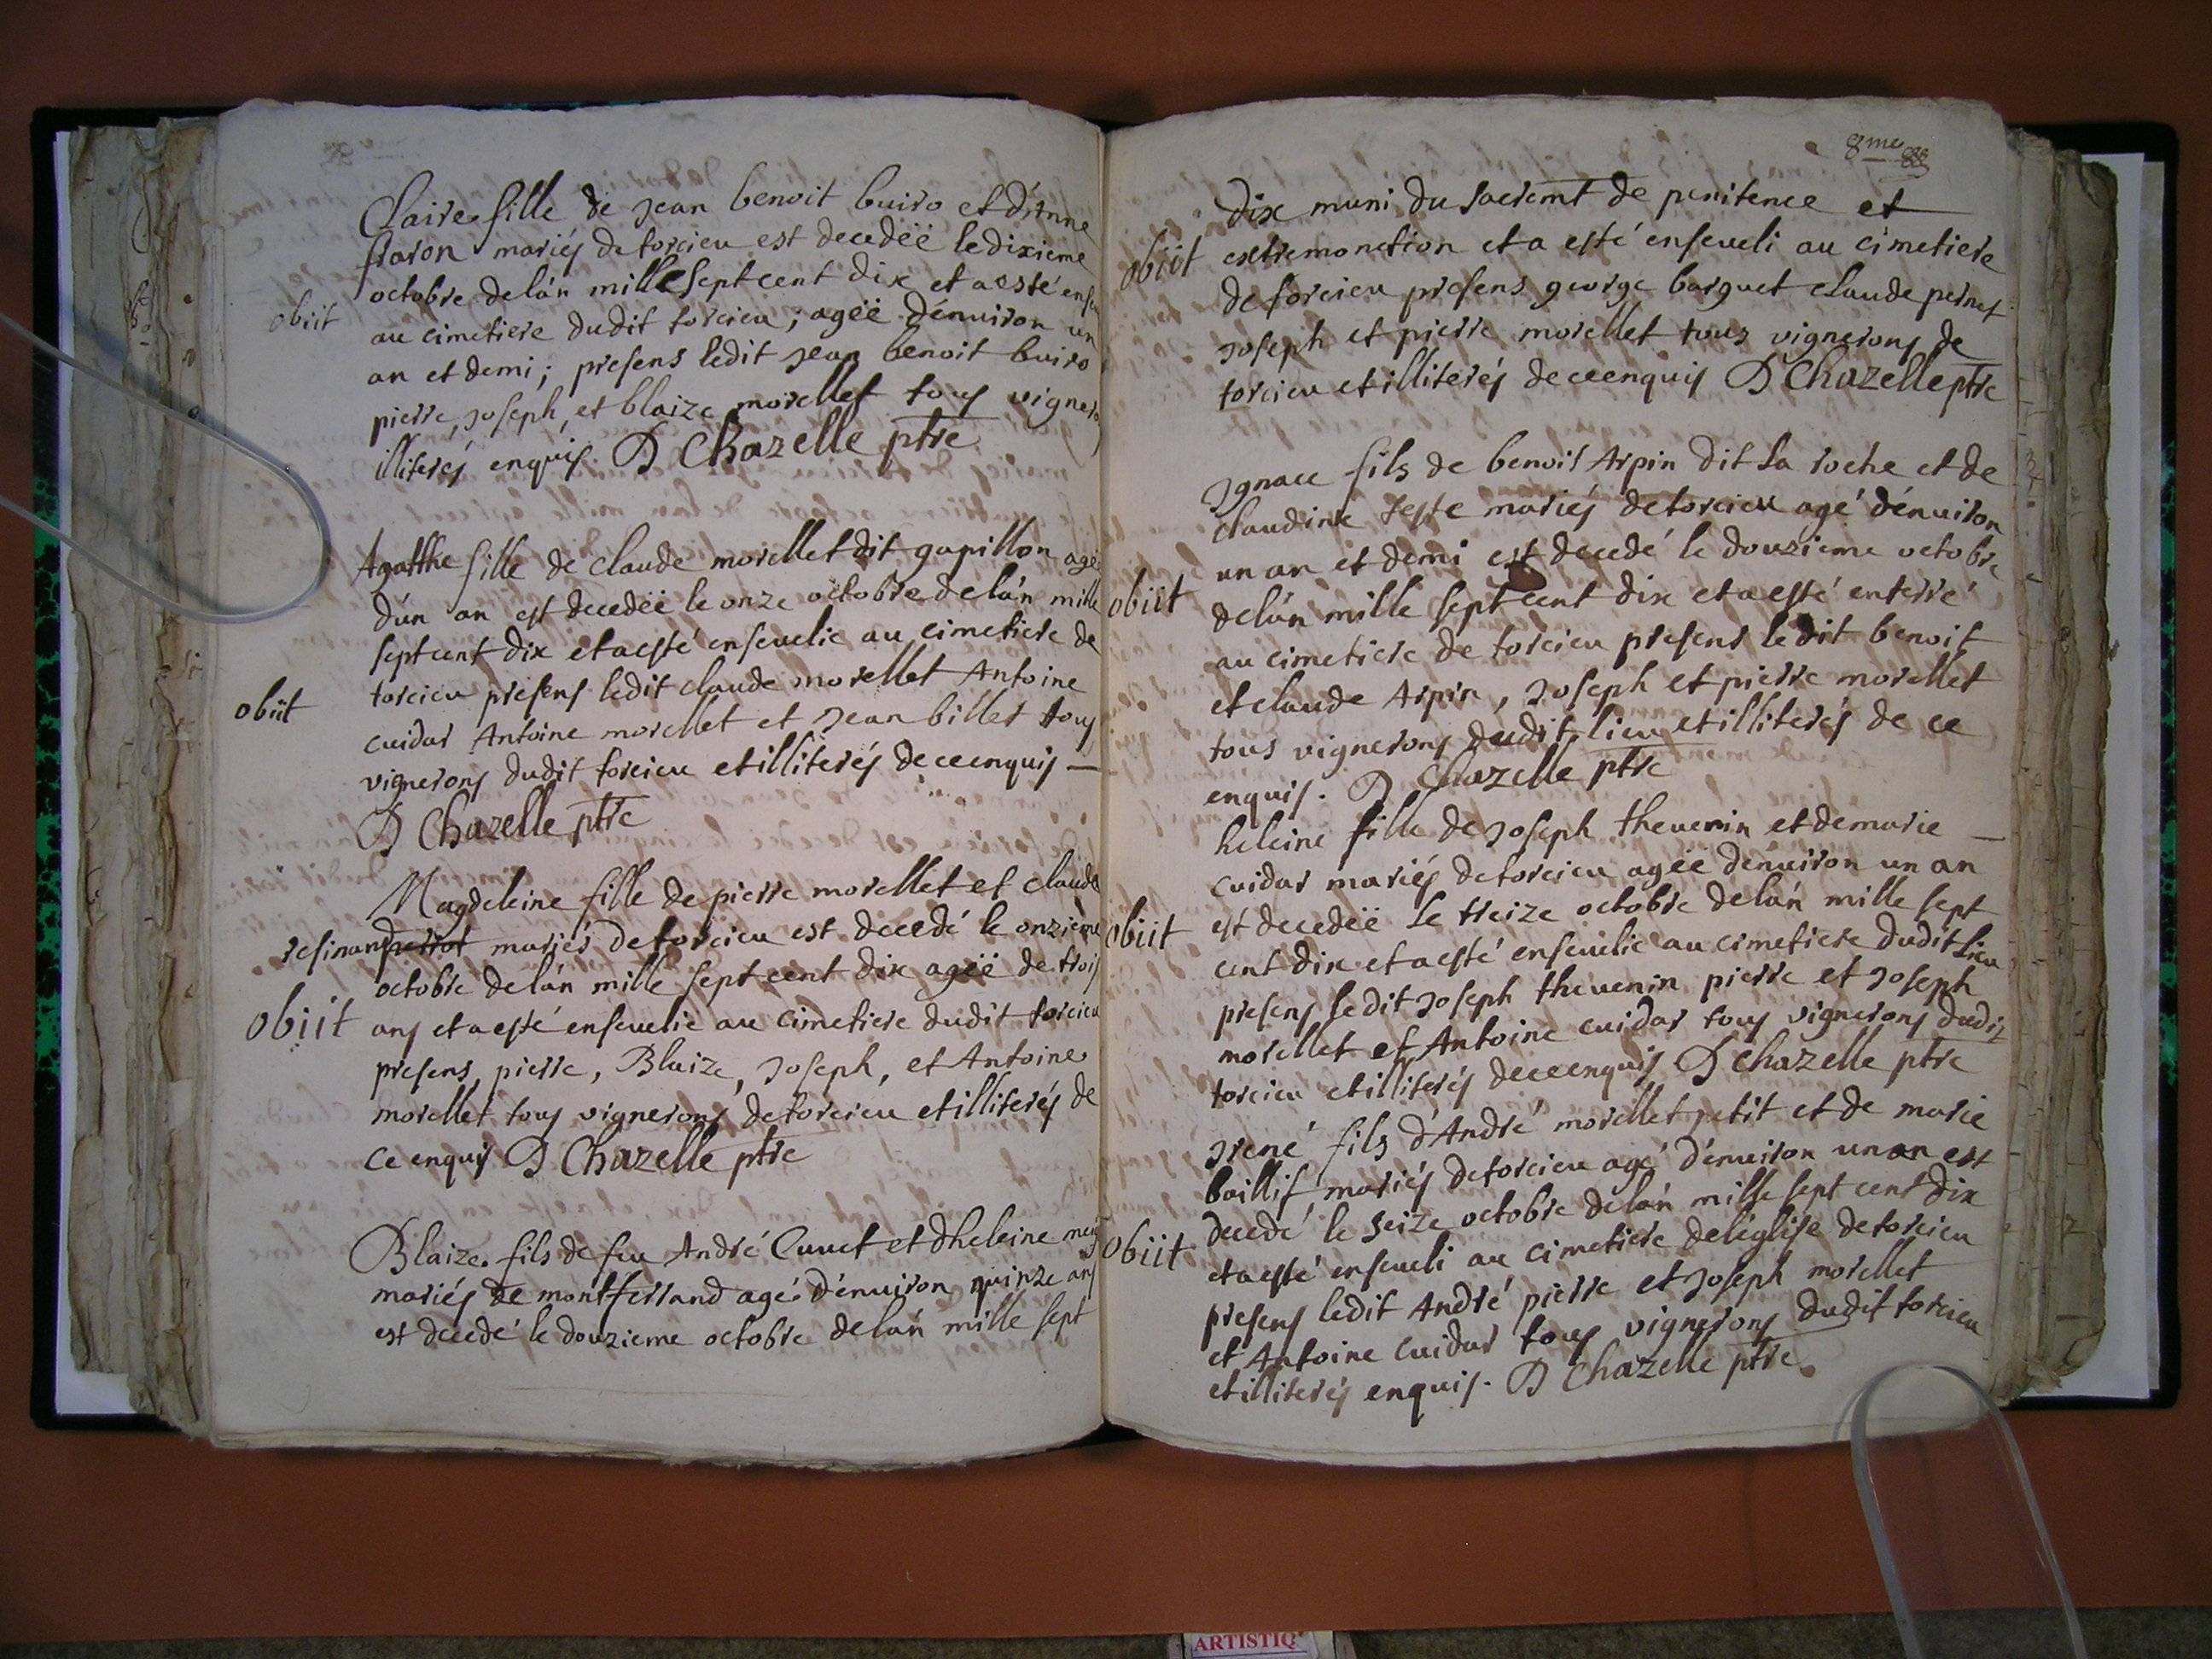 Claire fille de jean benoit buiro et d'Anne
mariés de torcieu est decedëe le dixieme
octobre de l'an mille sept cent dix et a esté
obiit
au cimetiere dudit torcieu ; agëe d'énuiron un
an et demi ; presens ledit jean benoit buiro
pierre, joseph, et blaize morellet tous
illiterés enquis. D Chazelle ptre
Agatthe fille de claude morellet dit gapillon agé
d'ún an est decedëe le onze octobre de l'án mille
sept cent dix et a esté enseuelie au cimetiere de
torcieu presens ledit claude morellet Antoine
obiit
cuidar Antoine morellet et jean billet tous
vignerons dudit torcieu et illiterés de ce enquis
D Chazelle ptre
Magdeleine fille de pierre morellet et claude
resinand mariés de torcieu est decedé le onzieme
octobre de l'án mille sept cent dix agëe de trois
obiit
ans et a esté enseuelie au cimetiere dudit torcieu
presens, pierre, Blaize, joseph, et Antoine
morellet tous vignerons de torcieu et illiterés de
ce enquis D Chazelle ptre
Blaize fils de feu André Cunet et d'heleine
mariés de montferrand agé d'énuiron quinze ans
est decedé le douzieme octobre de l'án mille sept
8me
dix muni du sacremt de penitence et
obiit
extremonction et a esté enseueli au cimetiere
de torcieu presens george barquet claude pernet
joseph et pierre morellet tous vignerons de
torcieu et illiterés de ce enquis D Chazelle ptre
jgnace fils de benoit Arpin dit la roche et de
claudine teste mariés de torcieu agé d'énuiron
un an et demi est decedé le douzieme octobre
obiit
de l'án mille sept cent dix et a esté enterré
au cimetiere de torcieu presens ledit benoit
et claude Arpin, joseph et pierre morellet
tous vignerons dudit lieu et illiterés de ce
enquis. D Chazelle ptre
heleine fille de joseph theuenin et de marie
cuidar mariés de torcieu agëe d'enuiron un an
est decedëe le treize octobre de l'án mille sept
obiit
cent dix et a esté enseuelie au cimetiere dudit lieu
presens ledit joseph theuenin pierre et joseph
morellet et Antoine cuidar tous vignerons dudit
torcieu et illiterés de ce enquis D Chazelle ptre
jrené fils d'André morellet petit et de marie
baillif mariés de torcieu agé d'énuiron un an est
decedé le seize octobre de l'án mille sept cent dix
obiit
et a esté enseueli au cimetiere de l'église de torcieu
presens ledit André pierre et joseph morellet
et Antoine cuidar tous vignerons dudit torcieu
et illiterés enquis. D Chazelle ptre
ARTISTIQ